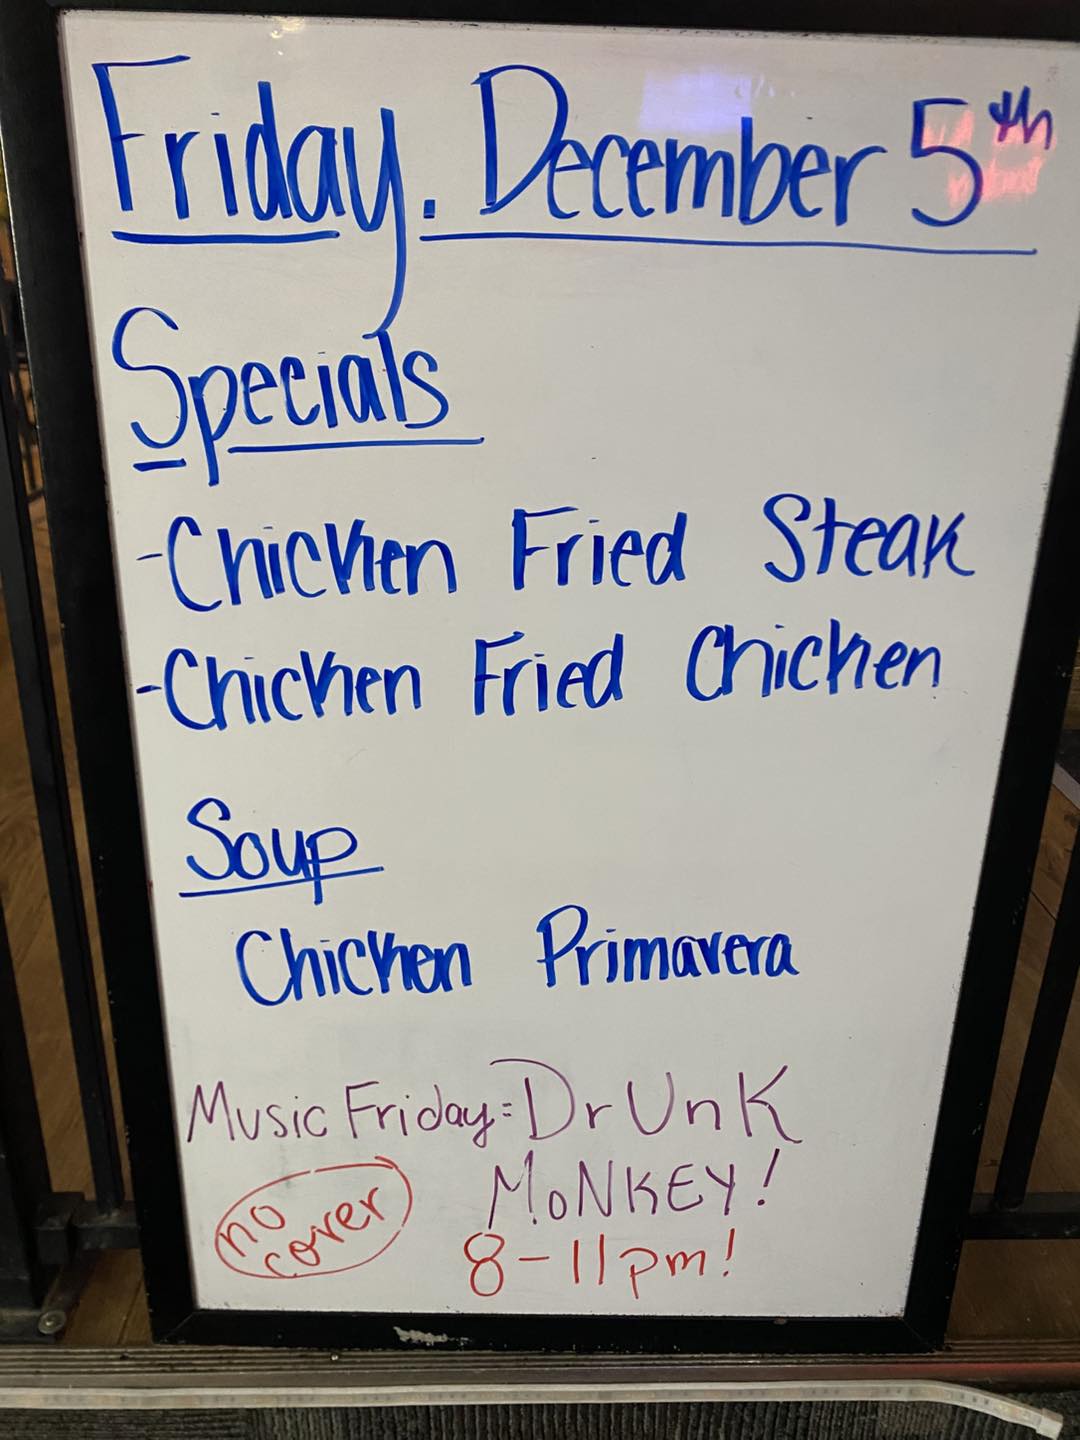 Friday. December 5th
Specials
-Chicken Fried Steak
-Chicken Fried Chicken
Soup
Chicken Primavera
Music Friday: DrUnK
MoNKEY!
no
cover
8-11pm!